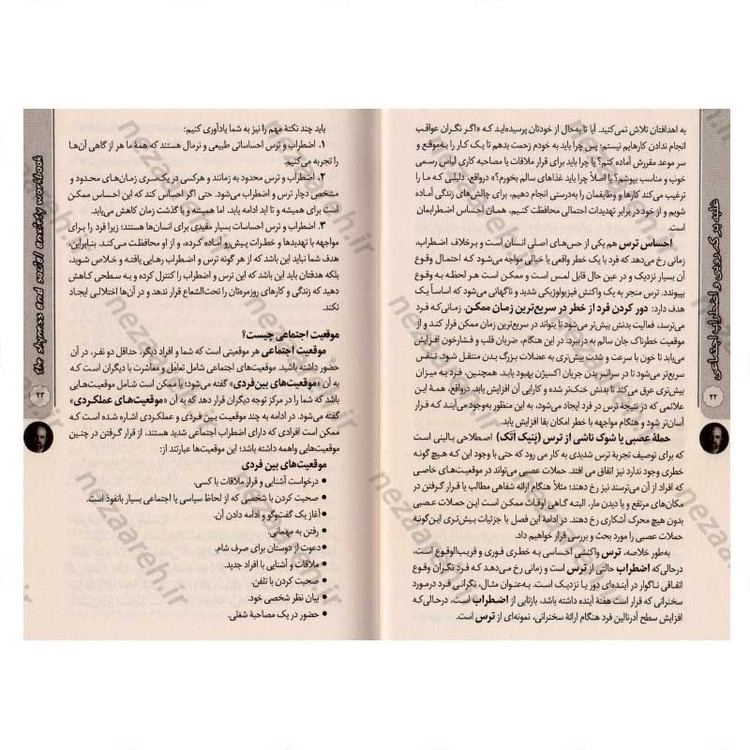 به اهدافتان تلاش نمی‌کنید. آیا تا به‌حال از خودتان پرسیده‌اید که «اگر نگران عواقب
انجام ندادن کارهایم نیستم؛ پس چرا باید به خودم زحمت بدهم تا یک کار را به‌موقع و
سر موعد مقررش انجام دهم؟ یا چرا باید برای قرار ملاقات یا مصاحبه کاری لباس رسمی
خوب و مناسب بپوشم؟ یا اصلاً چرا باید غذاهای سالم بخورم؟» درواقع، دلیلی که ما را
ترغیب می‌کند کارها و وظایفمان را به‌درستی انجام دهیم، برای چالش‌های زندگی آماده
شویم و از خود در برابر تهدیدات احتمالی محافظت کنیم، همان احساس اضطرابمان
است.
احساس ترس هم یکی از حس‌های اصلی انسان است و برخلاف اضطراب،
زمانی رخ می‌دهد که فرد با یک خطر واقعی یا خیالی مواجه می‌شود که احتمال وقوع
آن بسیار نزدیک و در عین حال قابل لمس است و ممکن است هر لحظه به وقوع
بپیوندد. ترس منجر به یک واکنش فیزیولوژیکی شدید و ناگهانی می‌شود که اساساً یک
هدف دارد: دور کردن فرد از خطر در سریع‌ترین زمان ممکن. زمانی‌که فرد
می‌ترسد، فعالیت بدنش بیش‌تر می‌شود تا بتواند در سریع‌ترین زمان ممکن فرار کند و از
موقعیت خطرناک جان سالم به‌در ببرد. در این هنگام، ضربان قلب و فشارخون افزایش
می‌یابد تا خون با سرعت و شدت بیش‌تری به عضلات بزرگ بدن منتقل شود. تنفس
سریع‌تر می‌شود تا در سراسر بدن جریان اکسیژن بهبود یابد. همین‌طور فرد به میزان
بیش‌تری عرق می‌کند تا بدنش خنک‌تر شده و کارایی آن افزایش یابد. درواقع، همهٔ این
علائمی که در نتیجهٔ ترس در فرد ایجاد می‌شود، به این منظور به‌وجود می‌آیند که فرار
آسان‌تر شود و هنگام مواجهه با خطر امکان بقا افزایش یابد.
حملهٔ عصبی یا شوک ناشی از ترس (پَنیک اَتک) اصطلاحی بالینی است
که برای توصیف تجربهٔ ترس شدیدی به کار می رود که حتی با وجود این که هیچ گونه
خطری وجود ندارد نیز اتفاق می افتد. حملات عصبی می‌تواند در موقعیت‌های خاصی
که افراد از آن می‌ترسند نیز رخ دهند؛ مثلاً هنگام ارائه شفاهی مطالب یا قرار گرفتن در
مکان‌های مرتفع و یا دیدن مار. البته گاهی اوقات ممکن است این حملات عصبی
بدون هیچ محرک آشکاری رخ دهند. در ادامهٔ این فصل با جزئیات بیش‌تری این‌گونه
حملات عصبی را مورد بحث و بررسی قرار خواهیم داد.
به‌طور خلاصه، ترس واکنشی احساسی به خطری فوری و قریب‌الوقوع است،
درحالی‌که اضطراب حالتی از ترس است و زمانی رخ می‌دهد که فرد نگران وقوع
اتفاقی ناگوار در آینده‌ای دور یا نزدیک است. به‌عنوان مثال، نگرانی فرد درمورد
سخنرانی که قرار است هفتهٔ آینده داشته باشد، بازتابی از اضطراب است، درحالی‌که
افزایش سطح آدرنالین فرد هنگام ارائهٔ سخنرانی، نمونه‌ای از ترس است.
غلبه بر کم‌رویی و اضطراب اجتماعی
۲۲
باید چند نکتهٔ مهم را نیز به شما یادآوری کنیم:
۱. اضطراب و ترس احساساتی طبیعی و نرمال هستند که همهٔ ما هر از گاهی آن‌ها
را تجربه می‌کنیم.
۲. اضطراب و ترس محدود به زمانند و هرکسی در یک‌سری زمان‌های محدود و
مشخص دچار ترس و اضطراب می‌شود. حتی اگر احساس کند که این احساس ممکن
است برای همیشه و تا ابد ادامه یابد. اما همیشه و با گذشت زمان کاهش می‌یابد.
۳. اضطراب و ترس احساسات بسیار مفیدی برای انسان‌ها هستند؛ زیرا فرد را برای
مواجهه با تهدیدها و خطرات پیش‌رو آماده کرده، و از او محافظت می‌کند. بنابراین،
هدف شما نباید این باشد که از هر گونه ترس و اضطراب رهایی یافته و خلاص شوید،
بلکه هدفتان باید این باشد که این ترس و اضطراب را کنترل کرده و به سطحی کاهش
دهید که زندگی و کارهای روزمره‌تان را تحت‌الشعاع قرار ندهد و در آن‌ها اختلالی ایجاد
نکند.
موقعیت اجتماعی چیست؟
موقعیت اجتماعی هر موقعیتی است که شما و افراد دیگر، حداقل دو نفر، در آن
حضور داشته باشید. موقعیت‌های اجتماعی شامل تعامل و معاشرت با دیگران است که
به آن «موقعیت‌های بین‌فردی» گفته می‌شود؛ یا ممکن است شامل موقعیت‌هایی
باشد که شما را در مرکز توجه دیگران قرار دهد که به آن «موقعیت‌های عملکردی»
گفته می‌شود. در ادامه به چند موقعیت بین‌فردی و عملکردی اشاره شده است که
ممکن است افرادی که دارای اضطراب اجتماعی شدید هستند، از قرار گرفتن در چنین
موقعیت‌هایی واهمه داشته باشد؛ این موقعیت‌ها عبارتند از:
موقعیت‌های بین فردی
• درخواست آشنایی و قرار ملاقات با کسی.
• صحبت کردن با شخصی که از لحاظ سیاسی یا اجتماعی بسیار بانفوذ است.
• آغاز یک گفت‌وگو و ادامه دادن آن.
• رفتن به مهمانی.
• دعوت از دوستان برای صرف شام.
• ملاقات و آشنایی با افراد جدید.
• صحبت کردن با تلفن.
• بیان نظر شخصی خود.
• حضور در یک مصاحبهٔ شغلی.
the shyness and social anxiety workbook
۲۳
nezaareh.ir